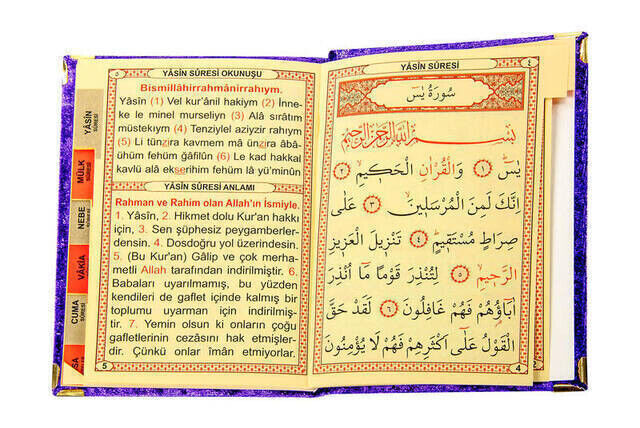 ٥
YÂSİN SÛRESİ OKUNUŞU
Bismillâhirrahmânirrahıym.
Yâsîn (1) Vel kur'ânil hakiym (2) İnne-
ke le minel murseliyn (3) Alâ sırâtım
müstekıym (4) Tenziylel aziyzir rahıym
(5) Li tünzira kavmem mâ ünzira âbâ-
ühüm fehüm gâfilûn (6) Le kad hakkal
kavlü alâ ekserihim fehüm lâ yü'minûn
YÂSİN SÛRESİ ANLAMI
Rahman ve Rahim olan Allah'ın İsmiyle.
1. Yâsîn, 2. Hikmet dolu Kur'an hakkı
için, 3. Sen şüphesiz peygamberler-
densin. 4. Dosdoğru yol üzerindesin.
5. (Bu Kur'an) Gâlip ve çok merha-
metli Allah tarafından indirilmiştir. 6.
Babaları uyarılmamış, bu yüzden
kendileri de gaflet içinde kalmış bir
toplumu uyarman için indirilmiş-
tir. 7. Yemin olsun ki onların çoğu
gafletlerinin cezasını hak etmişler-
dir. Çünkü onlar îmân etmiyorlar.
5
YÂSİN SÛRESİ
MÜLK SÛRESİ
NEBE SÛRESİ
VÂKIA SÛRESİ
CUMA SÛRESİ
YÂSİN SÛRESİ
٤
سُورَةُ يٰسٓ
بِسْمِ اللّٰهِ الرَّحْمٰنِ الرَّحِيمِ
يٰسٓ ﴿١﴾ وَالْقُرْاٰنِ الْحَكِيمِ ﴿٢﴾
اِنَّكَ لَمِنَ الْمُرْسَلِينَ ﴿٣﴾ عَلٰى
صِرَاطٍ مُسْتَقِيمٍ ﴿٤﴾ تَنْزِيلَ الْعَزِيزِ
الرَّحِيمِ ﴿٥﴾ لِتُنْذِرَ قَوْمًا مَٓا اُنْذِرَ
اٰبَٓاؤُهُمْ فَهُمْ غَافِلُونَ ﴿٦﴾ لَقَدْ حَقَّ
الْقَوْلُ عَلٰٓى اَكْثَرِهِمْ فَهُمْ لَا يُؤْمِنُونَ
4